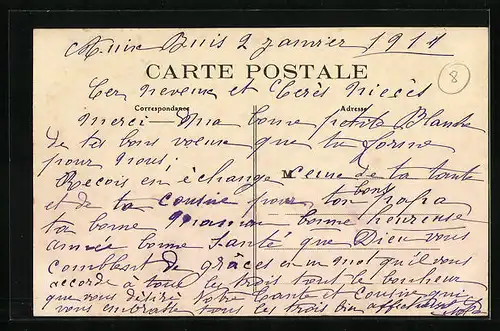 Buis 2 Janvier 1911
8
CARTE POSTALE
Correspondance
Adresse
Cer neveux et Cheres Nieces
Merci Ma bonne petite Blanche
de tes bons voeux que tu forme
pour nous;
M
Recois en échange ceux de ta tante
et de ta cousine pour ton bon papa
ta bonne Maman bonne heureuse
année bonne Santé que Dieu vous
comblent de grâces en un mot qu'il vous
accorde a tous les trois tout le bonheur
que vous désire votre tante et cousine qui
vous embrasse tous les trois bien